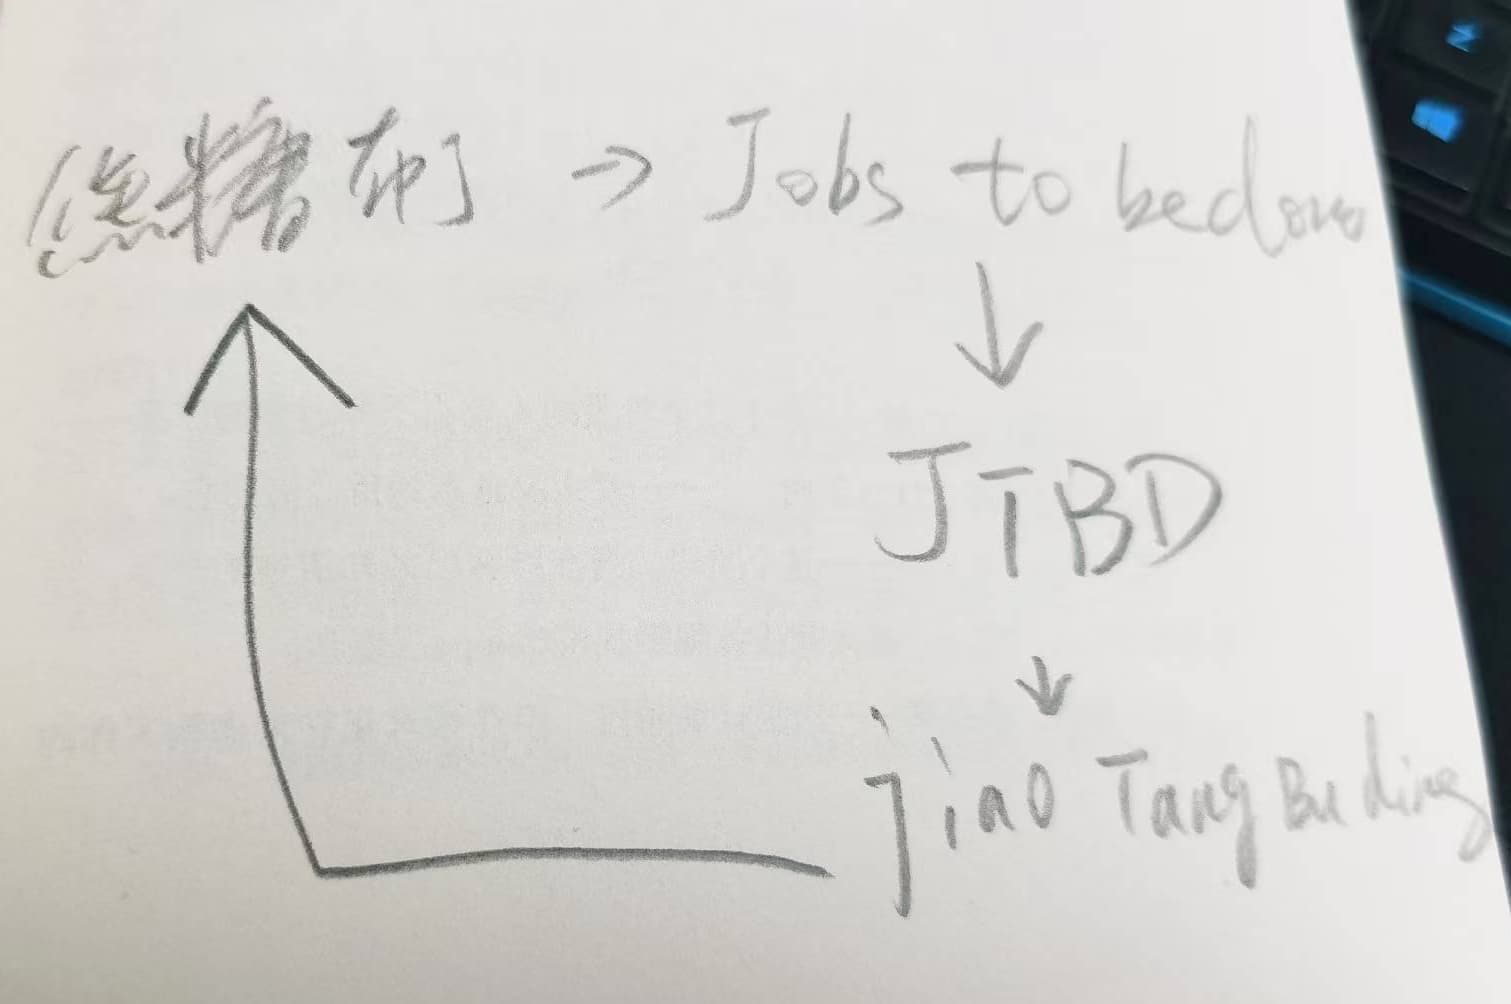 焦糖布丁 → Jobs to be done
JTBD
jiao Tang Bu ding